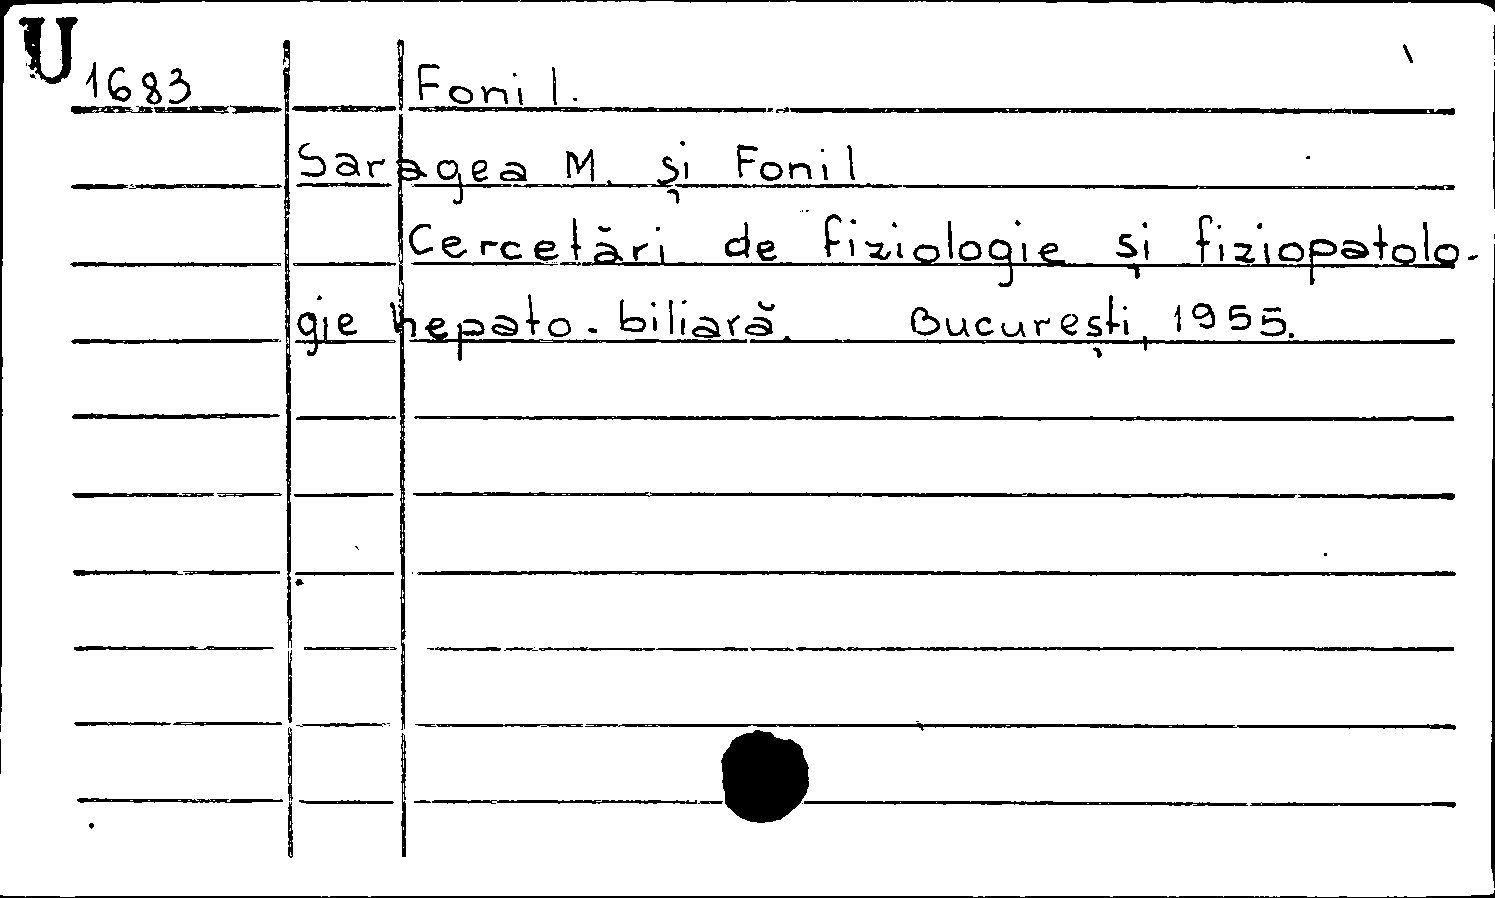 U
1683 Foni I.
Saragea M. și Foni I
Cercetări de fiziologie și fiziopatolo-
gie hepato-biliară. București, 1955.